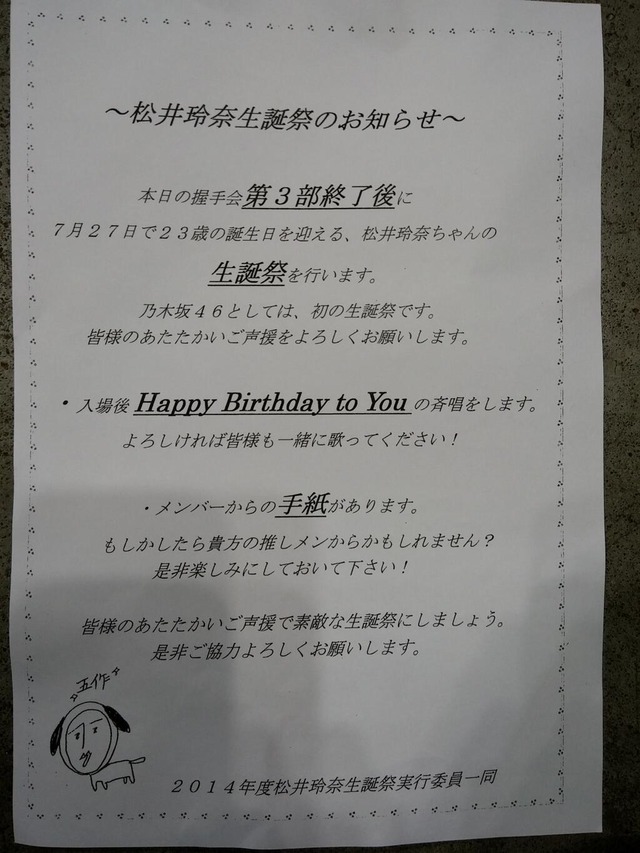 ～松井玲奈生誕祭のお知らせ～
本日の握手会第３部終了後に
７月２７日で２３歳の誕生日を迎える、松井玲奈ちゃんの
生誕祭を行います。
乃木坂４６としては、初の生誕祭です。
皆様のあたたかいご声援をよろしくお願いします。
・入場後 Happy Birthday to You の斉唱をします。
よろしければ皆様も一緒に歌ってください！
・メンバーからの手紙があります。
もしかしたら貴方の推しメンからかもしれません？
是非楽しみにしておいて下さい！
皆様のあたたかいご声援で素敵な生誕祭にしましょう。
是非ご協力よろしくお願いします。
五作
２０１４年度松井玲奈生誕祭実行委員一同